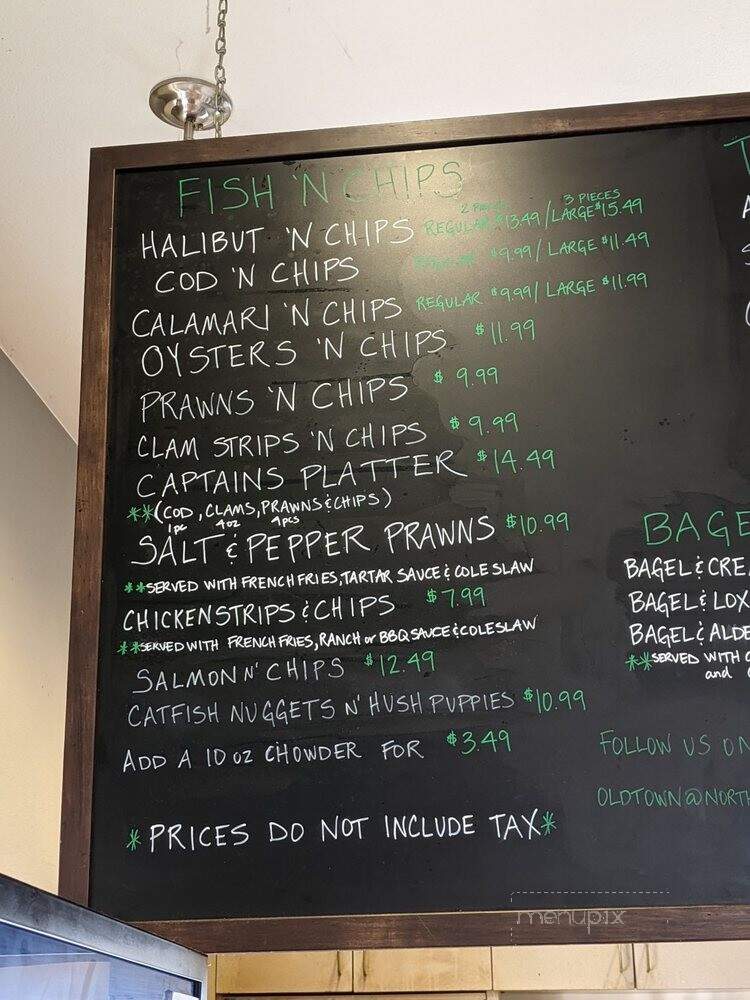 FISH 'N CHIPS
2 PIECES 3 PIECES
HALIBUT 'N CHIPS REGULAR $13.49/LARGE $15.49
COD 'N CHIPS REGULAR $9.99/ LARGE $11.49
CALAMARI 'N CHIPS REGULAR $9.99/ LARGE $11.99
OYSTERS 'N CHIPS $11.99
PRAWNS 'N CHIPS $9.99
CLAM STRIPS 'N CHIPS $9.99
CAPTAINS PLATTER $14.49
**(COD, CLAMS, PRAWNS & CHIPS)
1pc 4oz 4pcs
SALT & PEPPER PRAWNS $10.99
**SERVED WITH FRENCH FRIES, TARTAR SAUCE & COLE SLAW
CHICKEN STRIPS & CHIPS $7.99
**SERVED WITH FRENCH FRIES, RANCH or BBQ SAUCE & COLESLAW
SALMON N' CHIPS $12.49
CATFISH NUGGETS N' HUSH PUPPIES $10.99
ADD A 10 oz CHOWDER FOR $3.49
*PRICES DO NOT INCLUDE TAX*
BAGE
BAGEL & CREA
BAGEL & LOX
BAGEL & ALDE
**SERVED WITH C
and
FOLLOW US ON
OLDTOWN@NORTH
menupix